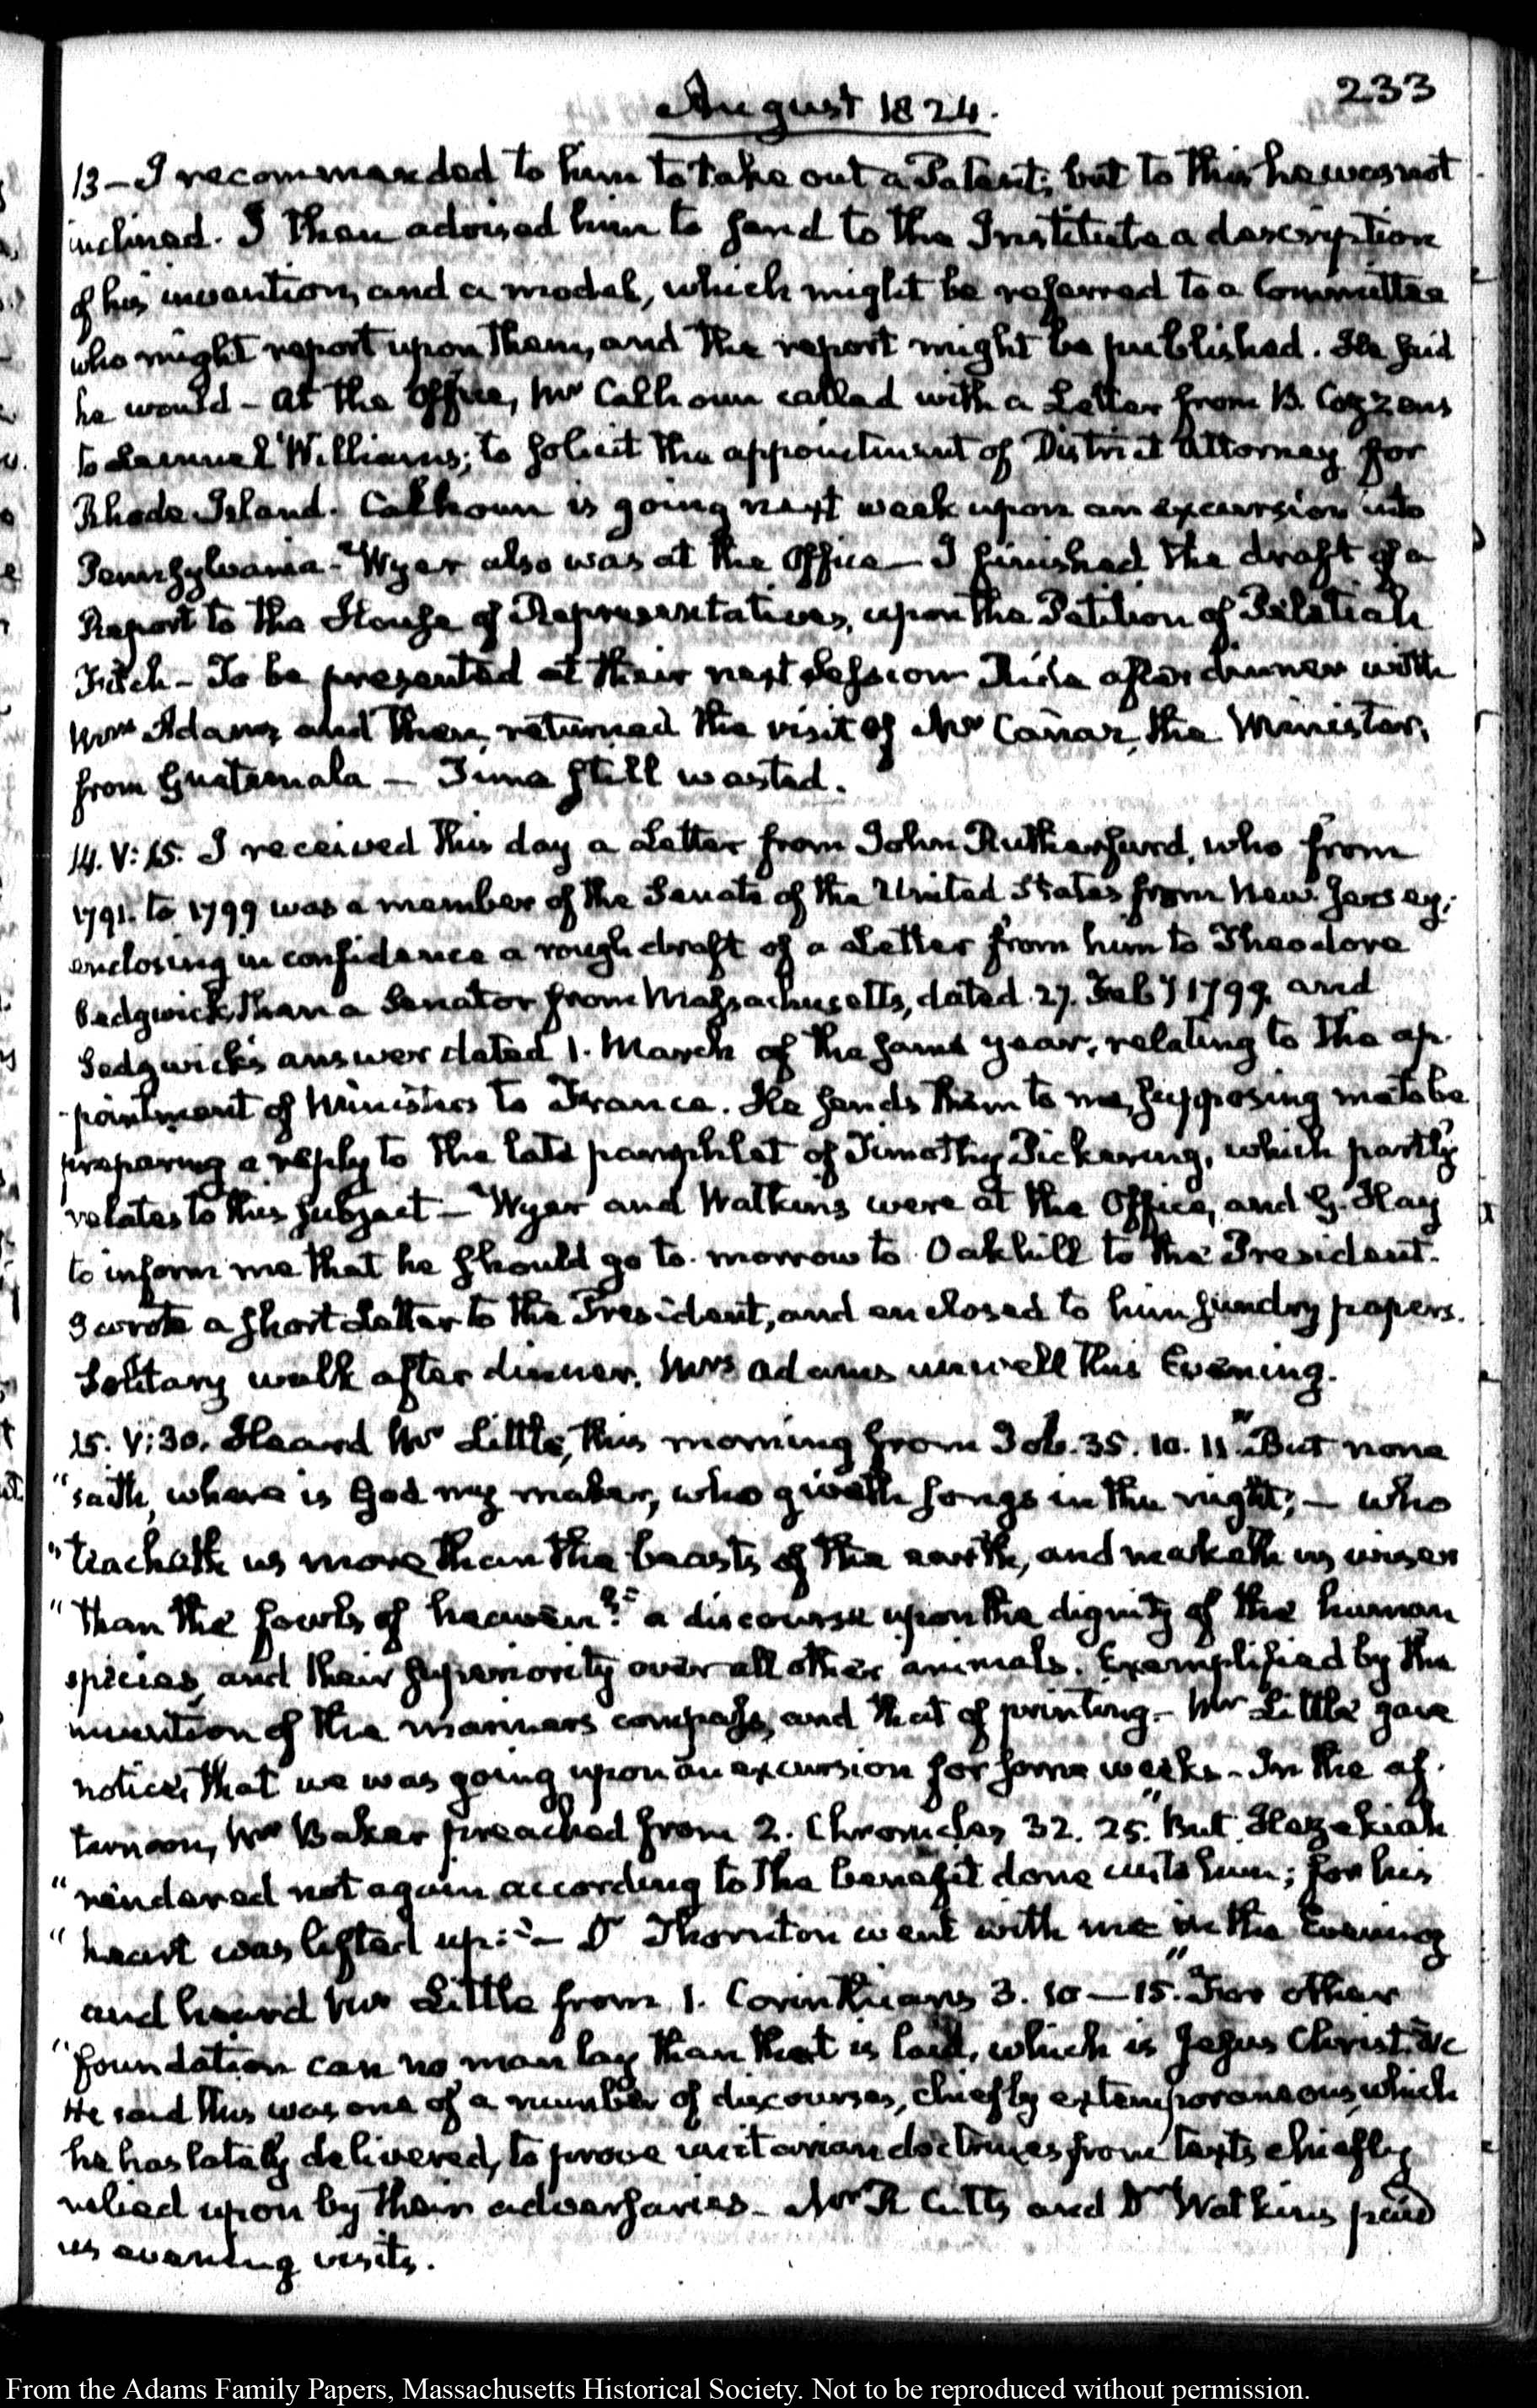 233
August 1824.
13 — I recommended to him to take out a Patent; but to this he was not
inclined. I then advised him to send to the Institute a description
of his invention, and a model, which might be referred to a Committee
who might report upon them, and the report might be published. He said
he would — At the Office, Mr Calhoun called with a Letter from B. Cozzens
to Lemuel Williams; to solicit the appointment of District Attorney for
Rhode Island. Calhoun is going next week upon an excursion into
Pennsylvania — Wyer also was at the Office — I finished the draft of a
Report to the House of Representatives, upon the Petition of Pelatiah
Fitch — To be presented at their next Session Ride after dinner with
Mrs Adams and then returned the visit of Mr Cañaz, the Minister,
from Guatemala — Time still wasted.
14. V: 15. I received this day a Letter from John Rutherfurd, who from
1791. to 1799 was a member of the Senate of the United States from New Jersey;
enclosing in confidence a rough draft of a Letter from him to Theodore
Sedgwick, then a Senator from Massachusetts, dated 27. Feby 1799. and
Sedgwick's answer dated 1. March of the same year, relating to the ap-
-pointment of Ministers to France. He sends them to me, supposing me to be
preparing a reply to the late pamphlet of Timothy Pickering, which partly
relates to this subject — Wyer and Watkins were at the Office, and G. Hay
to inform me that he should go to-morrow to Oakhill to the President.
I wrote a short Letter to the President, and enclosed to him sundry papers.
Solitary walk after dinner. Mrs Adams unwell this Evening.
15. V: 30. Heard Mr Little, this morning from Job. 35. 10. 11 "But none
"saith, where is God my maker, who giveth songs in the night; — who
"teacheth us more than the beasts of the earth, and maketh us wiser
"than the fowls of heaven?" a discourse upon the dignity of the human
species, and their superiority over all other animals. Exemplified by the
invention of the mariners compass, and that of printing — Mr Little gave
notice, that we was going upon an excursion for some weeks — In the af-
ternoon, Mr Baker preached from 2. Chronicles 32. 25. "But Hezekiah
"rendered not again according to the benefit done unto him; for his
"heart was lifted up:" — Dr Thornton went with me in the Evening
and heard Mr Little from 1. Corinthians 3. 10 — 15. "For other
"foundation can no man lay than that is laid, which is Jesus Christ &c
He said this was one of a number of discourses, chiefly extemporaneous, which
he has lately delivered, to prove unitarian doctrines from texts chiefly
relied upon by their adversaries — Mr R Cutts and Dr Watkins paid
us evening visits.
From the Adams Family Papers, Massachusetts Historical Society. Not to be reproduced without permission.